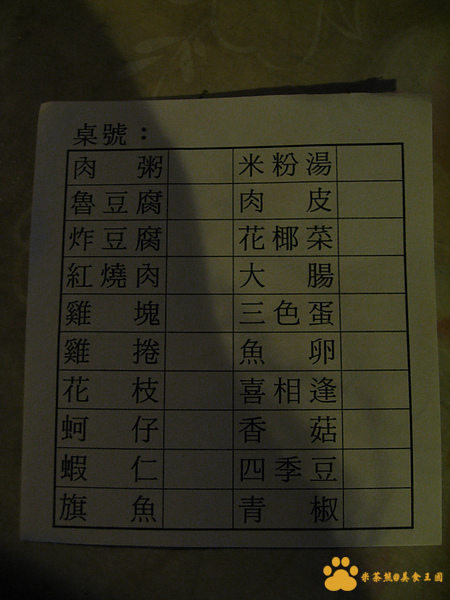 桌號：
肉粥 米粉湯
魯豆腐 肉皮
炸豆腐 花椰菜
紅燒肉 大腸
雞塊 三色蛋
雞捲 魚卵
花枝 喜相逢
蚵仔 香菇
蝦仁 四季豆
旗魚 青椒
米茶熊@美食王國